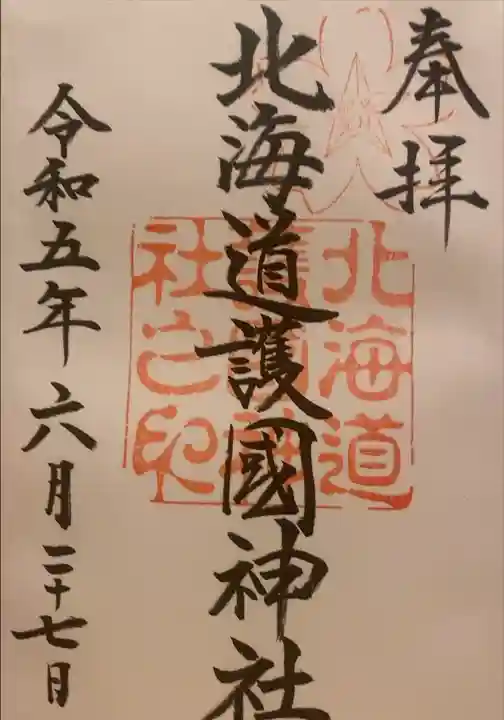 奉拝
北海道護國神社
北海道
護國神
社之印
令和五年六月二十七日